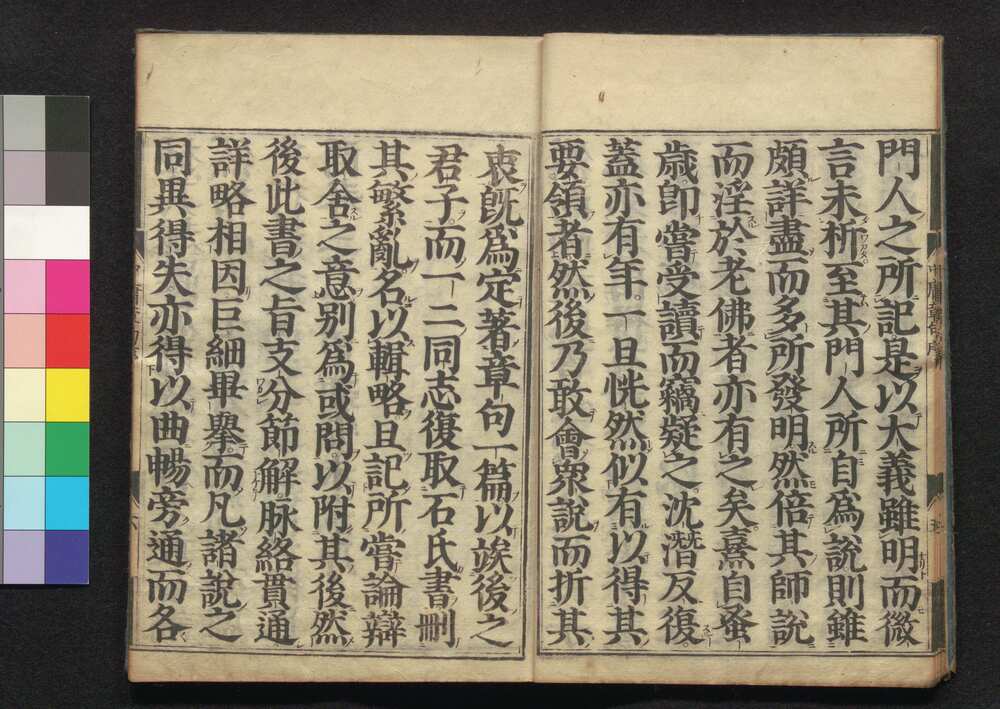 門人之所記是以大義雖明而微
言未析至其門人所自爲說則雖
頗詳盡而多所發明然倍其師說
而淫於老佛者亦有之矣熹自蚤
歲卽嘗受讀而竊疑之沈潛反復
蓋亦有年一旦恍然似有以得其
要領者然後乃敢會衆說而折其
衷旣爲定著章句一篇以竢後之
君子而一二同志復取石氏書刪
其繁亂名以輯略且記所嘗論辯
取舍之意別爲或問以附其後然
後此書之旨支分節解脉絡貫通
詳略相因巨細畢擧而凡諸說之
同異得失亦得以曲暢旁通而各